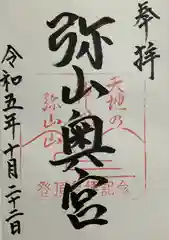 奉拝
弥山奥宮
令和五年十月二十二日
天地の
弥山山
登頂
記